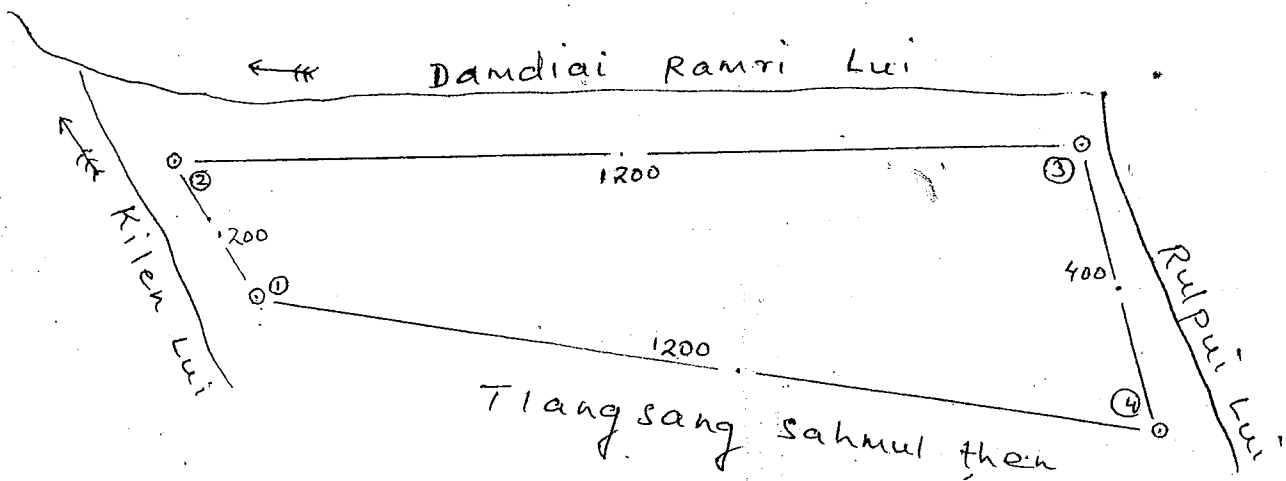 Damdiai Ramri Lui
②
1200
③
Kilen Lui
200
①
400
Rulpui Lui
1200
④
Tlangsang Sahmul ṭhen